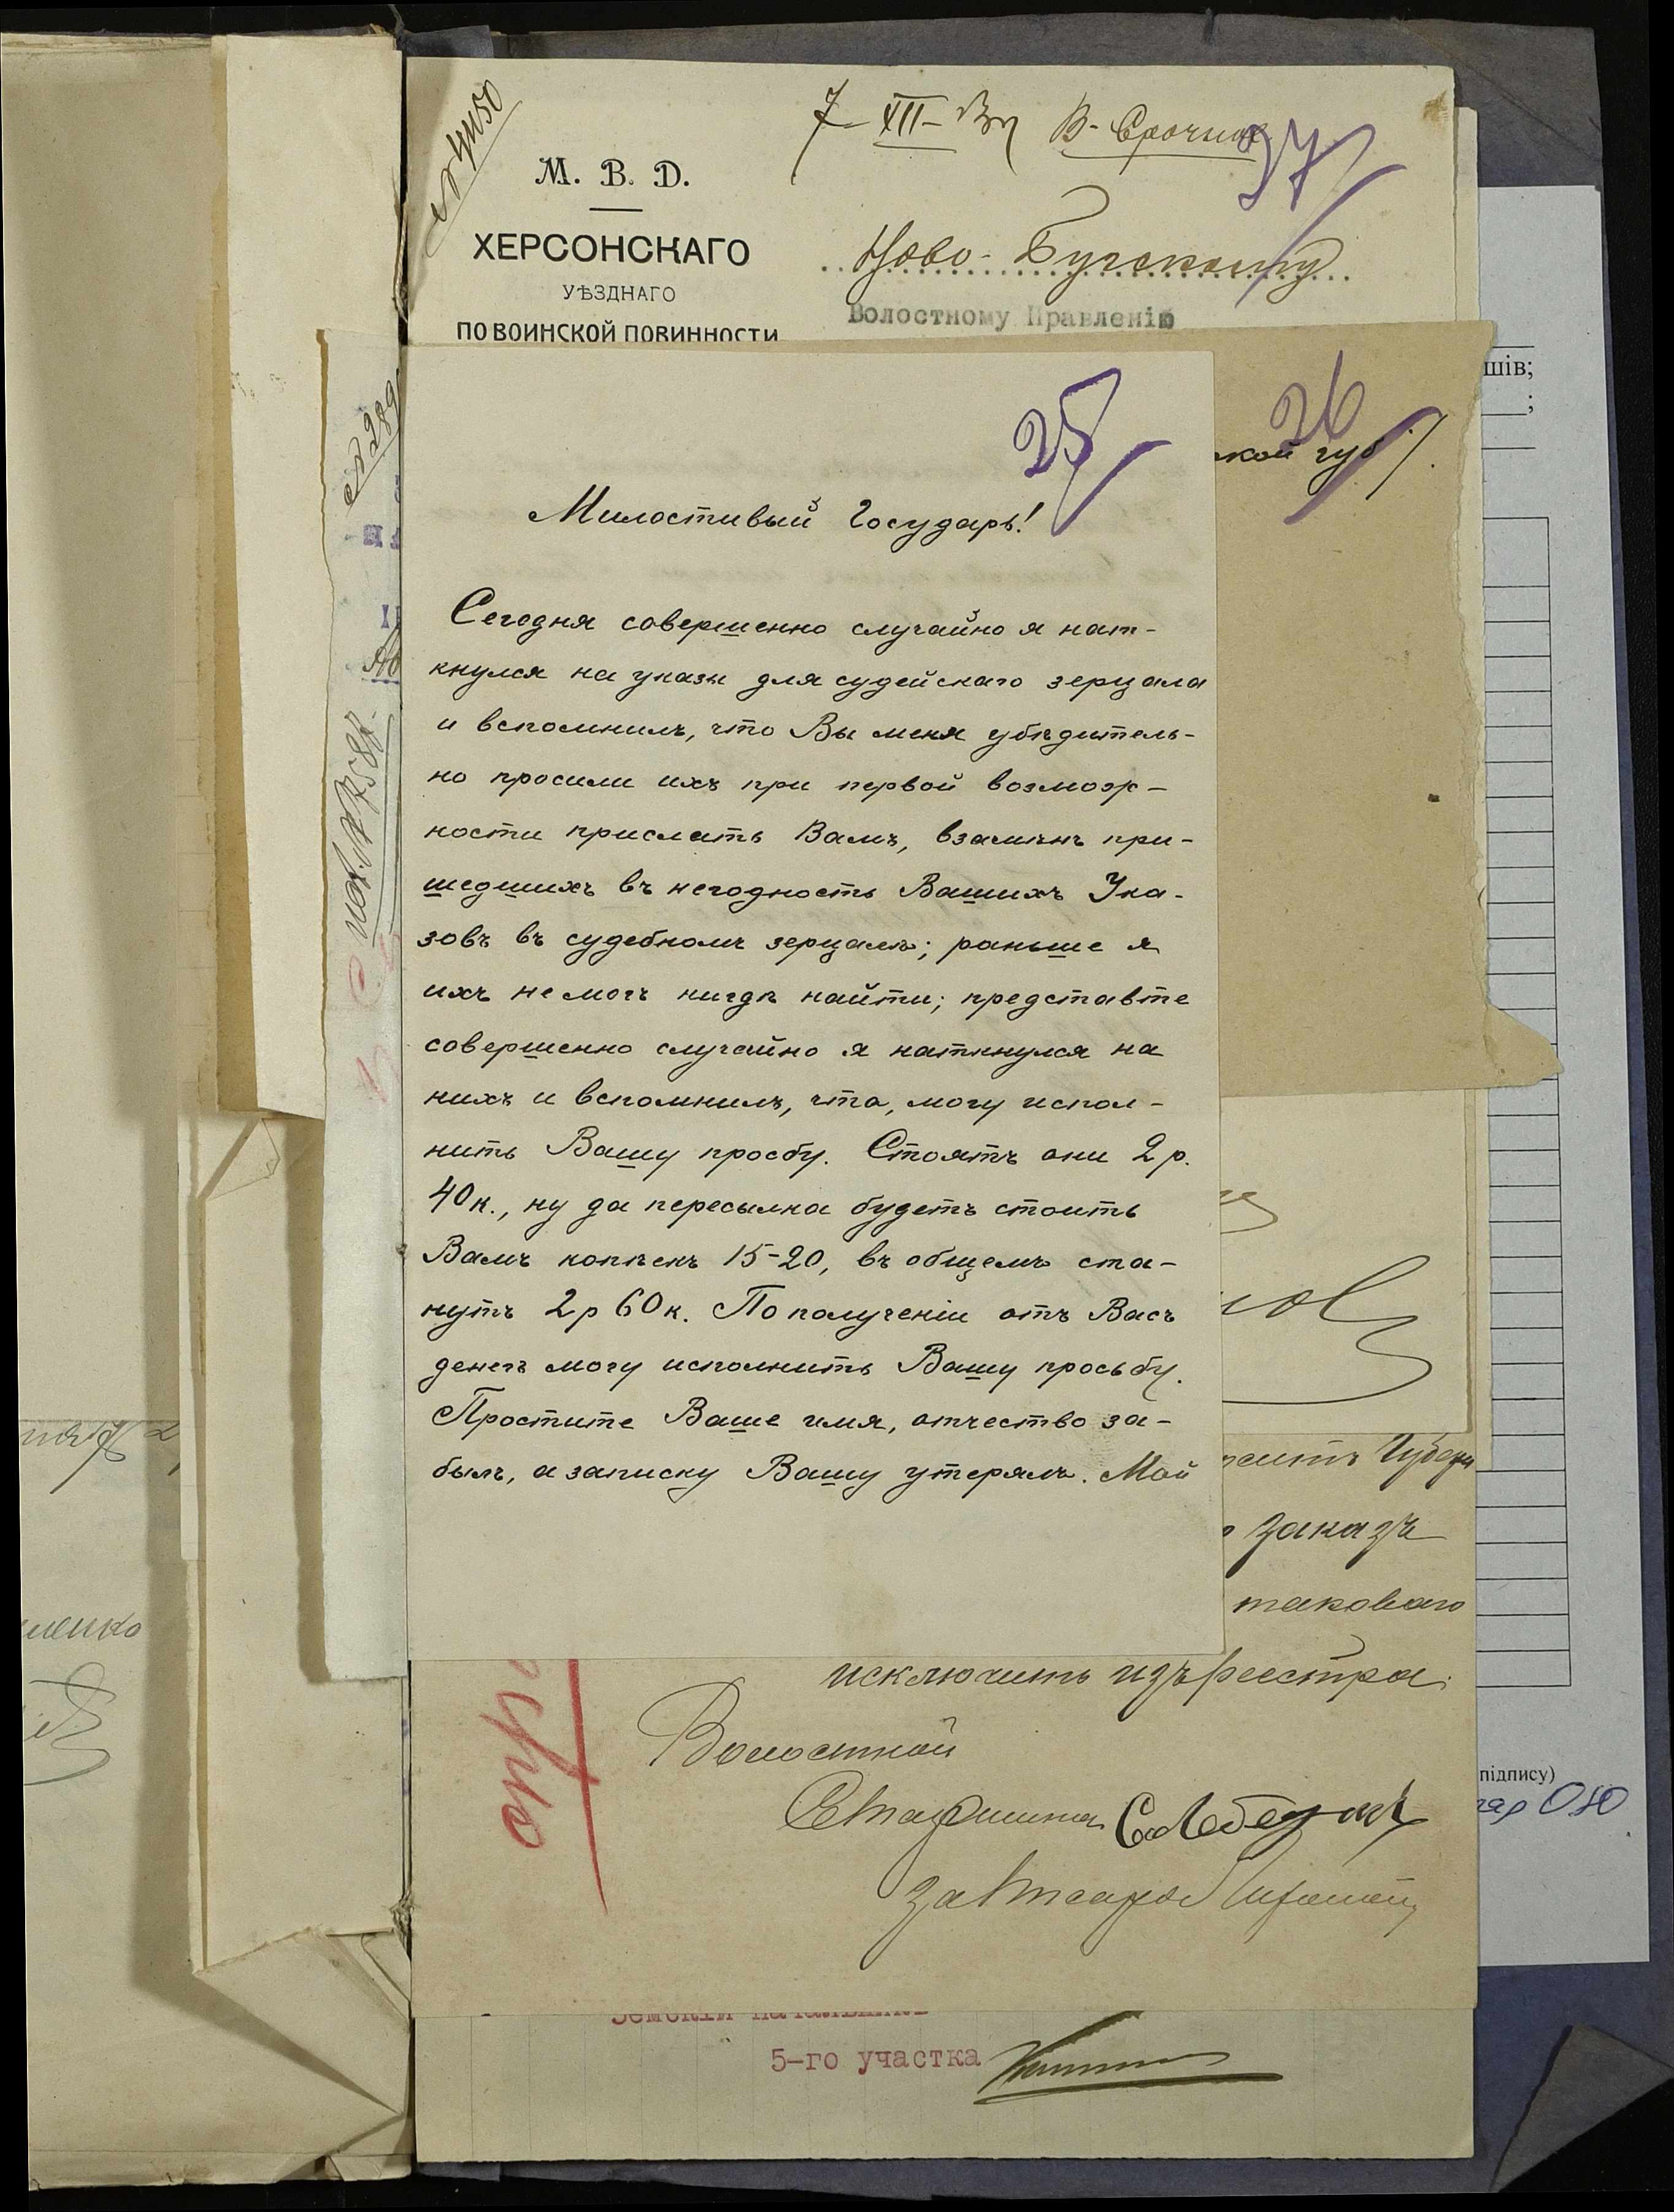 7-XII-
В-Срочное
37
М. В. Д.
ХЕРСОНСКАГО
УѢЗДНАГО
ПО ВОИНСКОЙ ПОВИННОСТИ
Ново-Бугскому
Волостному Правленію
26
ской губ.
25
Милостивый Государь!
Сегодня совершенно случайно я нат-
кнулся на указы для судейскаго зерцала
и вспомнилъ, что Вы меня убѣдитель-
но просили ихъ при первой возмож-
ности прислать Вамъ, взамѣнъ при-
шедшихъ въ негодность Вашихъ Ука-
зовъ въ судебномъ зерцалѣ; раньше я
ихъ не могъ нигдѣ найти; представте
совершенно случайно я наткнулся на
нихъ и вспомнилъ, что, могу испол-
нить Вашу просбу. Стоятъ они 2 р.
40 к., ну да пересылка будетъ стоить
Вамъ копѣекъ 15-20, въ общемъ ста-
нутъ 2 р 60 к. По полученіи отъ Васъ
денегъ могу исполнить Вашу просьбу.
Простите Ваше имя, отчество за-
былъ, а записку Вашу утерялъ. Мой
заказъ
таковаго
исключить изъ реестра.
Волостной
Старшина
Земскій Начальникъ
5-го участка
шів;
;
підпису)